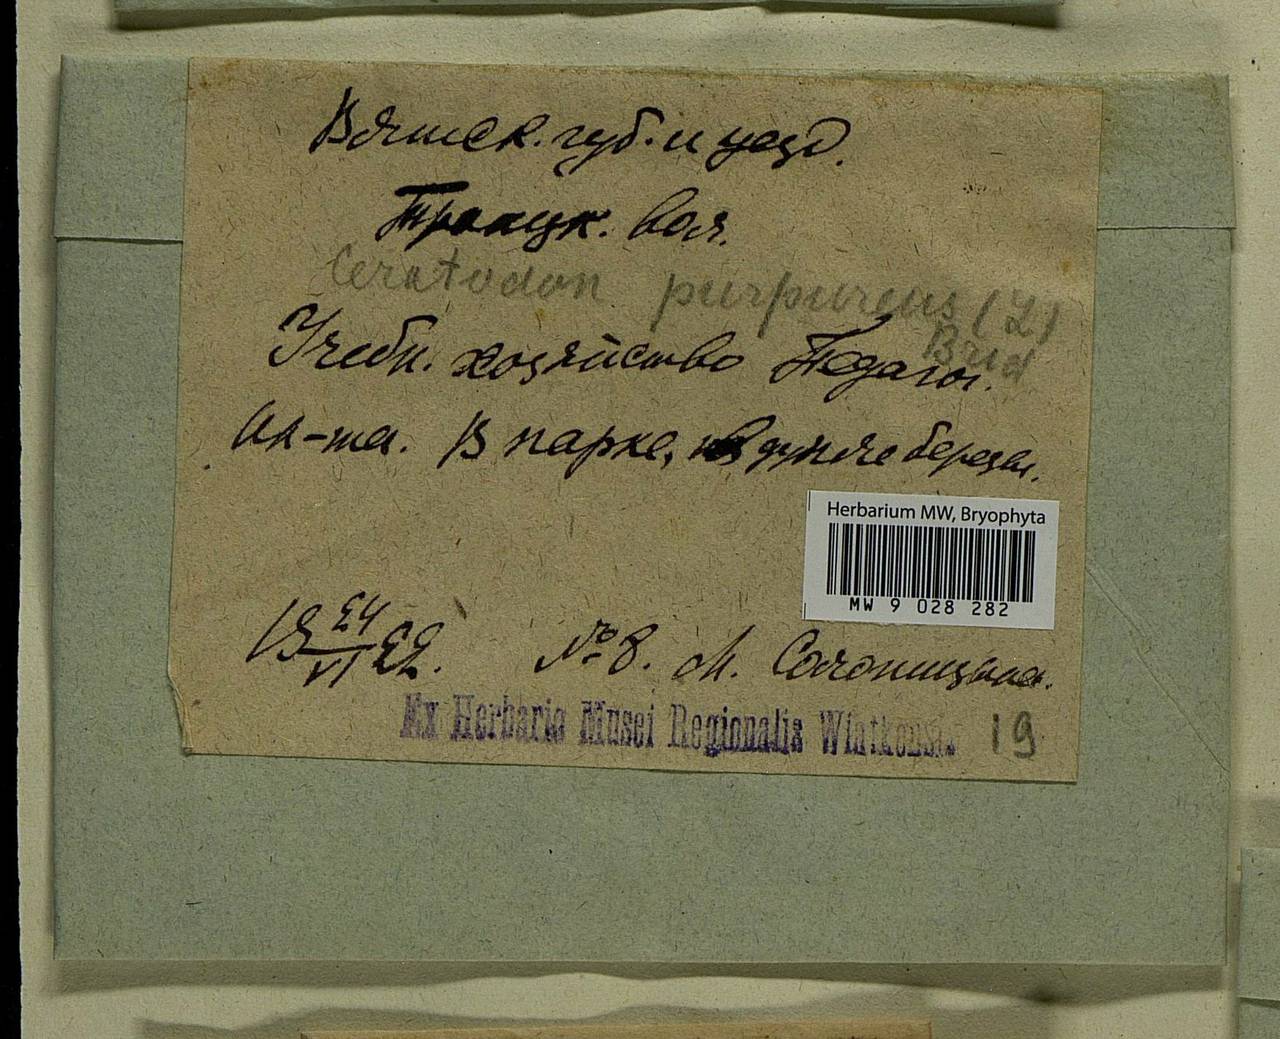 Вятск. губ. и уезд.
Троицк. вол.
Ceratodon purpureus (L)
Brid
Учебн. хозяйство Педагог.
Ин-та. В парке, в дупле березы.
19 24/VI 22. № 8. М. Солоницына.
Ex Herbario Musei Regionalis Wiatkensis 19
Herbarium MW, Bryophyta
MW 9 028 282